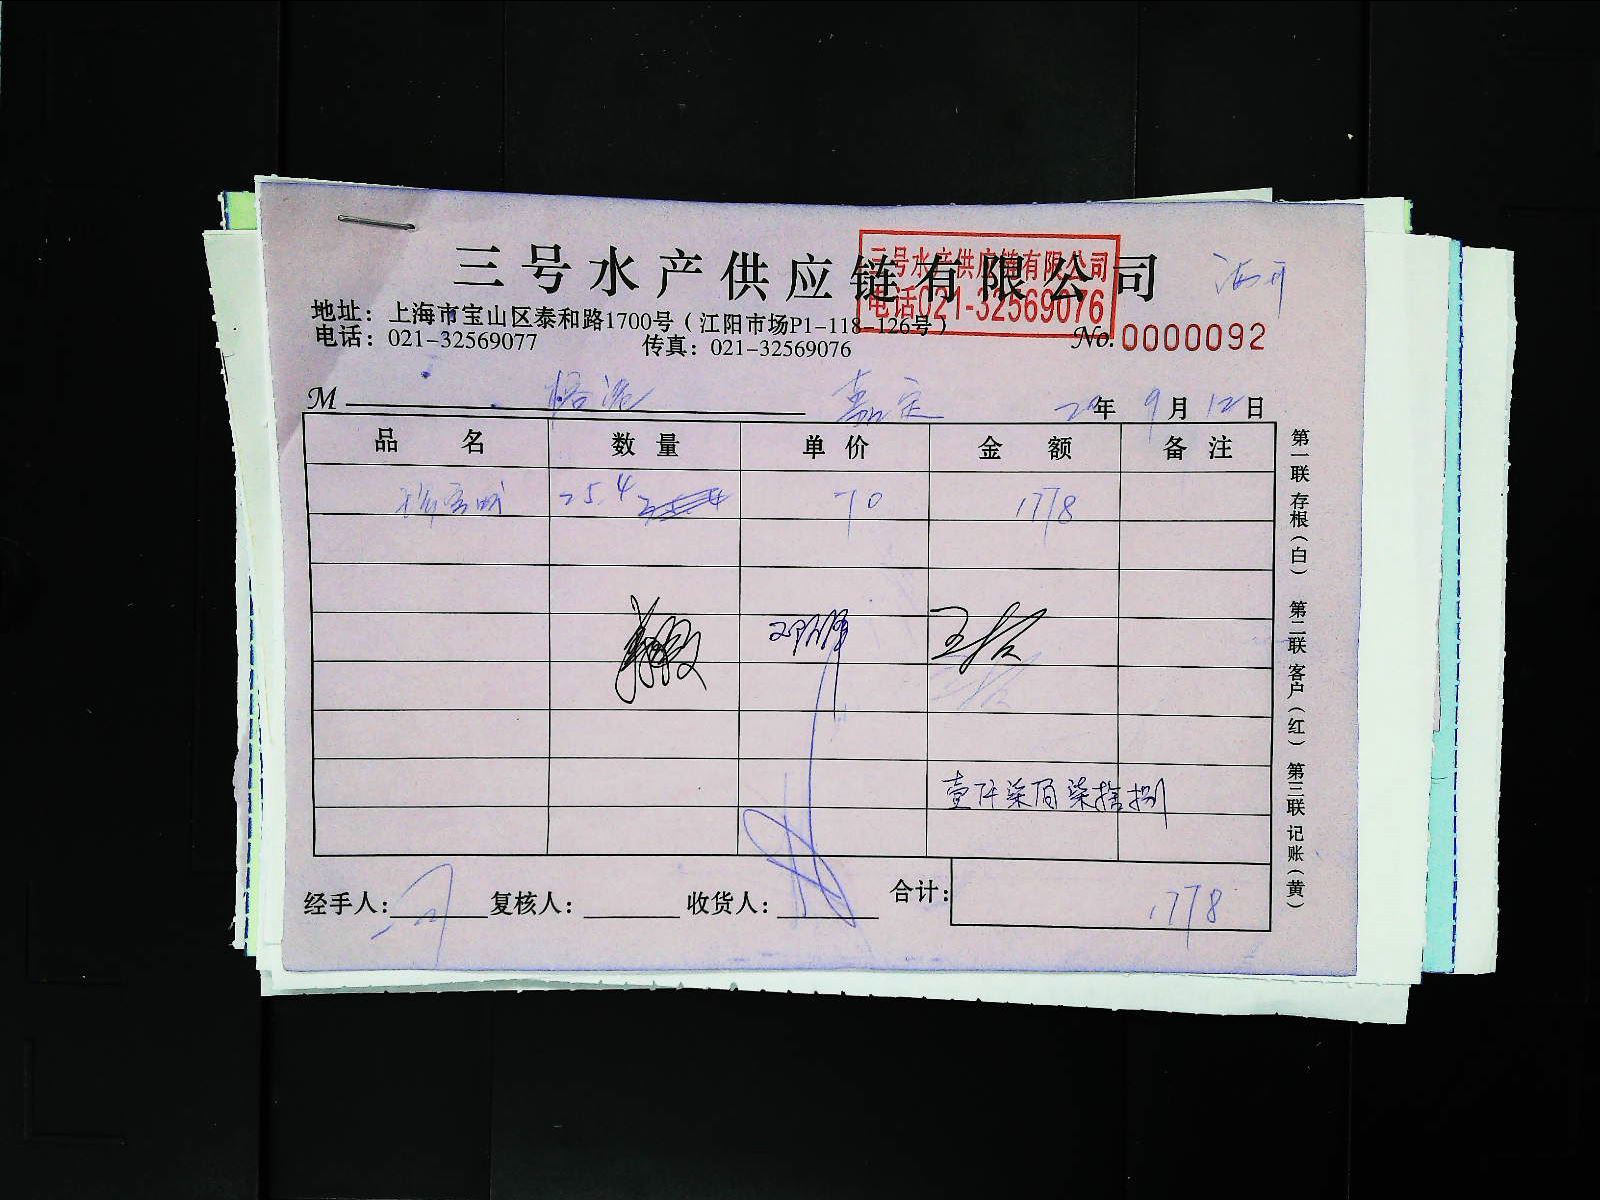 三号水产供应链有限公司
三号水产供应链有限公司
电话021-32569076
地址：上海市宝山区泰和路1700号（江阳市场P1-118-126号）
电话：021-32569077 传真：021-32569076
No.0000092
M 嘉定 20年9月12日
品名 数量 单价 金额 备注
25.4 70 1778
壹仟柒佰柒拾捌
经手人： 复核人： 收货人： 合计：1778
第一联存根（白） 第二联客户（红） 第三联记账（黄）